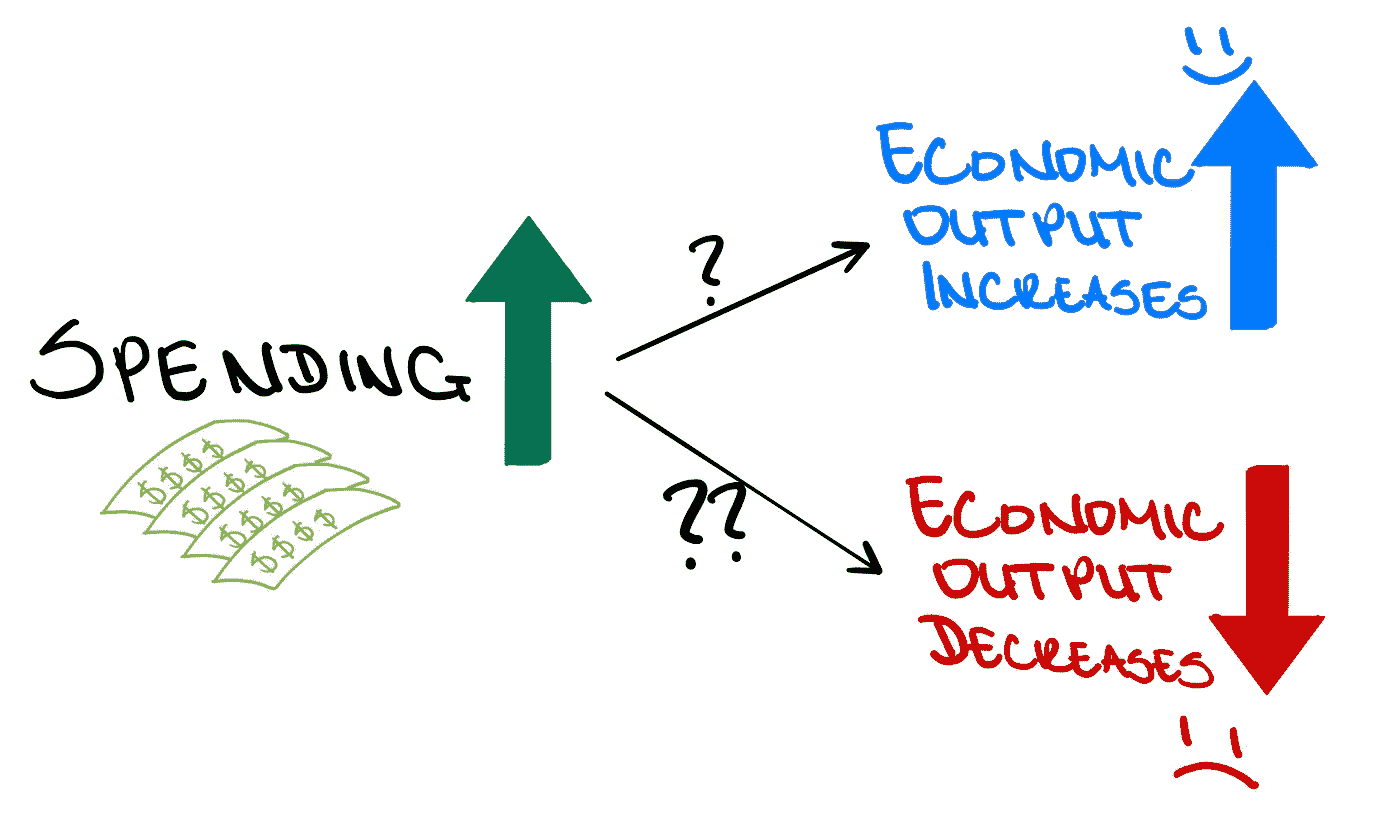 SPENDING
$$$$
$$$$
$$$$
$$$$
?
??
ECONOMIC
OUTPUT
INCREASES
ECONOMIC
OUTPUT
DECREASES